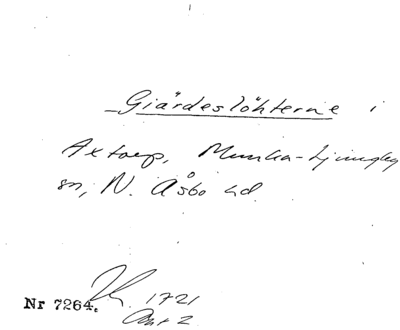 Giärdeslöhterne i
Axtorp, Munka-Ljungby
sn, N. Åsbo hd.
1721
Nr 7264.
Akt 2